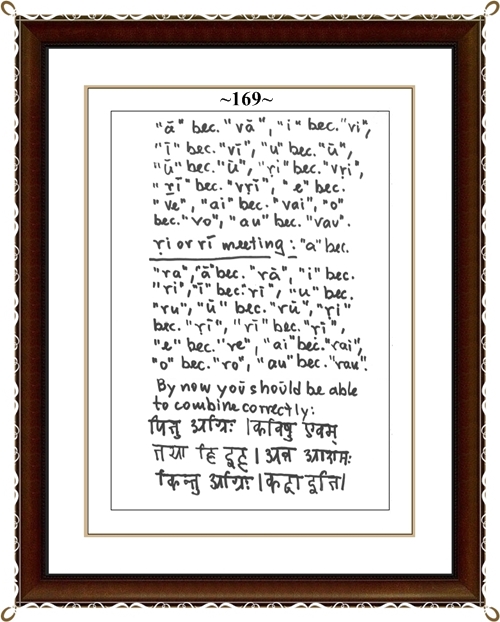 ~169~
"ā" bec. "vā", "i" bec. "vi",
"ī" bec. "vī", "u" bec. "ū",
"ū" bec. "ū", "ṛi" bec. "vṛi",
"ṛī" bec. "vṛī", "e" bec.
"ve", "ai" bec. "vai", "o"
bec. "vo", "au" bec. "vav".
ṛi or rī meeting: "a" bec.
"ra", "ā" bec. "rā", "i" bec.
"ri", "ī" bec. "rī", "u" bec.
"ru", "ū" bec. "rū", "ṛi"
bec. "ṛī", "rī" bec. "ṛī",
"e" bec. "re", "ai" bec. "rai",
"o" bec. "ro", "au" bec. "rau".
By now you should be able
to combine correctly:
अग्निः । कविषु एवम्
तथा हि । अत्र
किन्तु अग्निः ।